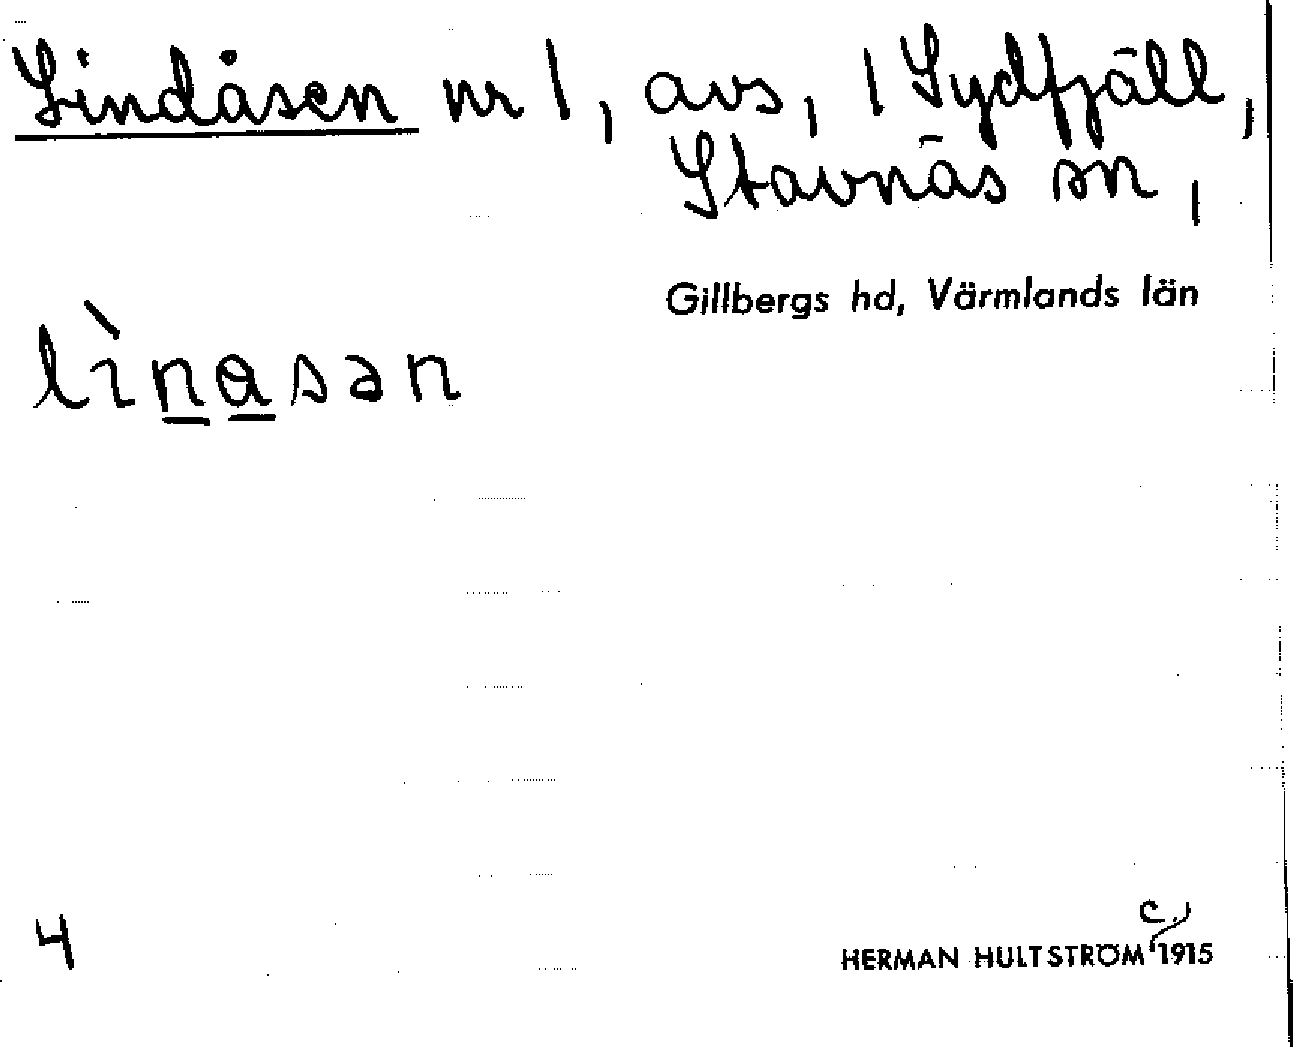 Lindåsen nr 1, avs, 1 Sydfjäll,
Stavnäs sn,
Gillbergs hd, Värmlands län
lìnasən
4
c.
HERMAN HULTSTRÖM 1915